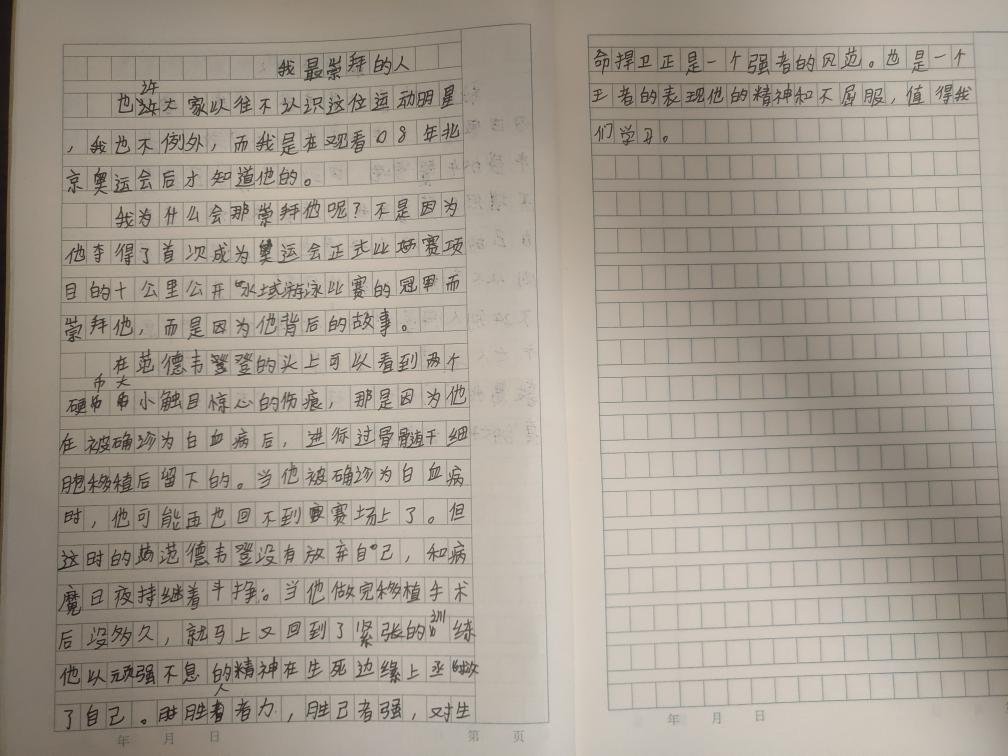 我最崇拜的人
也许大家以往不认识这位运动明星
，我也不例外，而我是在观看08年北
京奥运会后才知道他的。
我为什么会那崇拜他呢？不是因为
他夺得了首次成为奥运会正式比赛项
目的十公里公开水域游泳比赛的冠甲而
崇拜他，而是因为他背后的故事。
在范德韦登的头上可以看到两个
硬币大小触目惊心的伤痕，那是因为他
在被确诊为白血病后，进行过骨髓干细
胞移植后留下的。当他被确诊为白血病
时，他可能再也回不到赛场上了。但
这时的范德韦登没有放弃自己，和病
魔日夜持继着斗挣。当他做完移植手术
后没多久，就马上又回到了紧张的训练
他以顽强不息的精神在生死边缘上拯救
了自己。胜人者力，胜己者强，对生
年 月 日 第 页
命捍卫正是一个强者的风范。也是一个
王者的表现他的精神和不屈服，值得我
们学习。
年 月 日